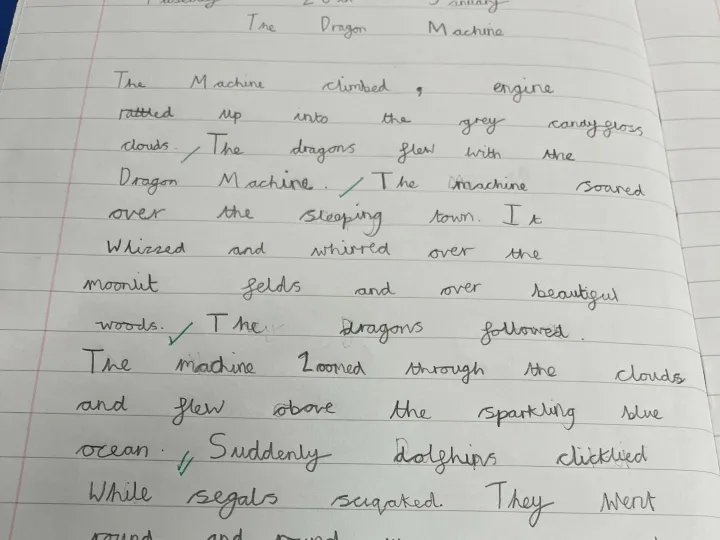 The Dragon Machine
The Machine climbed, engine
rattled up into the grey candygloss
clouds. The dragons flew with the
Dragon Machine. The machine soared
over the sleeping town. It
Whizzed and whirred over the
moonlit felds and over beautigul
woods. The dragons followed.
The machine Zoomed through the clouds
and flew above the sparkling blue
ocean. Suddenly dolphins clicklied
While segals suqaked. They went
round and round